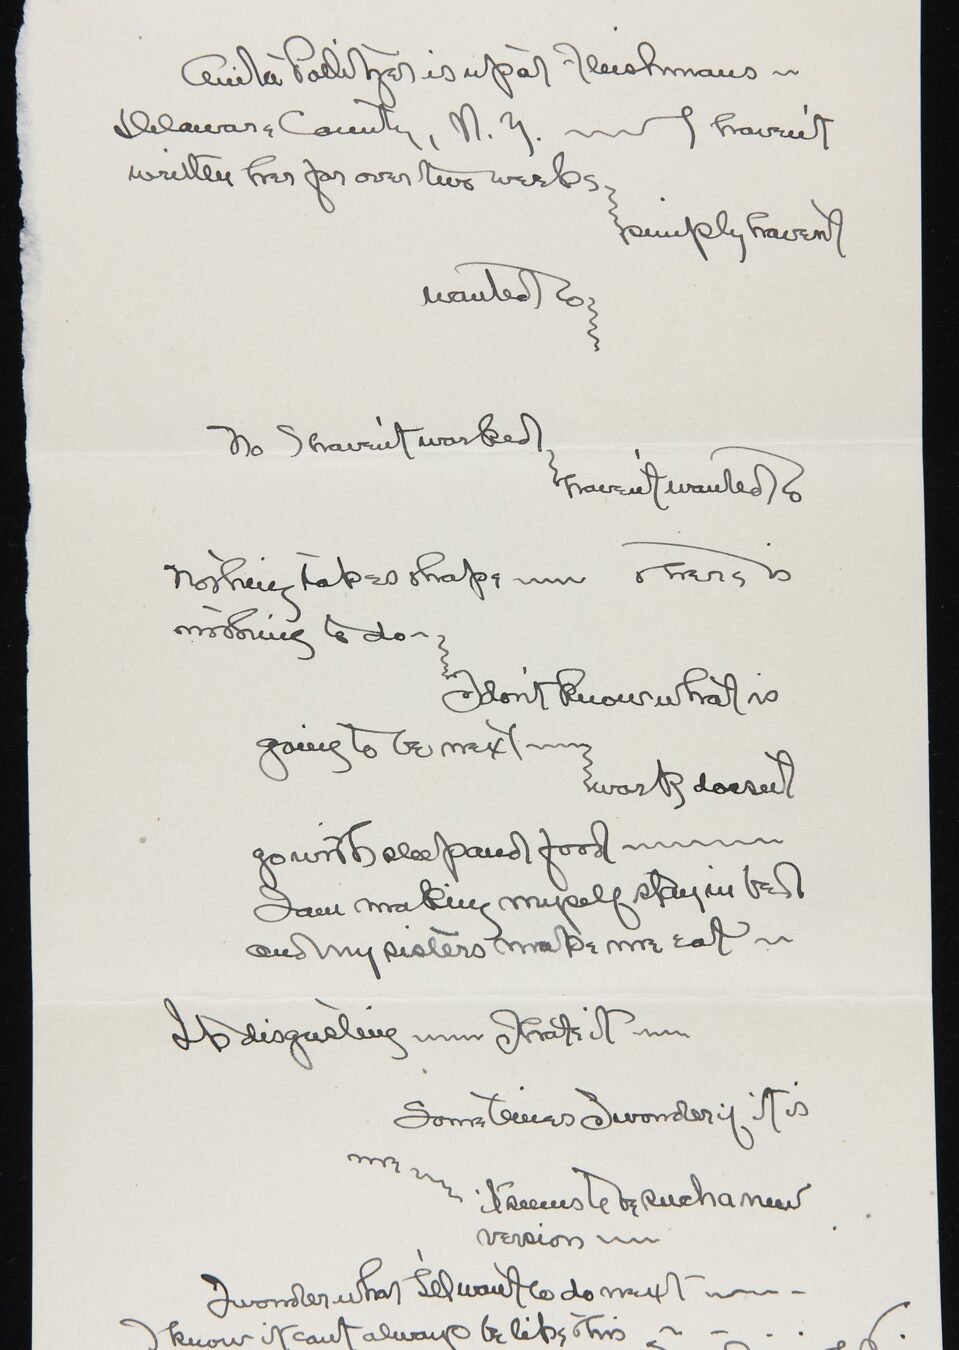 Anita Pollitzer is up at Fleishmans ~
Delaware County, N. Y. ~~~ I haven't
written her for over two weeks
simply havent
wanted to
No I haven't worked
haven't wanted to
Nothing takes shape ~~~ There is
nothing to do ~
I don't know what is
going to be next ~~~
work doesnt
go with sleep and food ~~~~~~
I am making myself stay in bed
and my sisters make me eat ~
Its disgusting ~~~ I hate it ~~~
Sometimes I wonder if it is
me ~~~
it seems to be such a new
version ~~~
I wonder what I'll want to do next ~~~ -
I know it cant always be like this